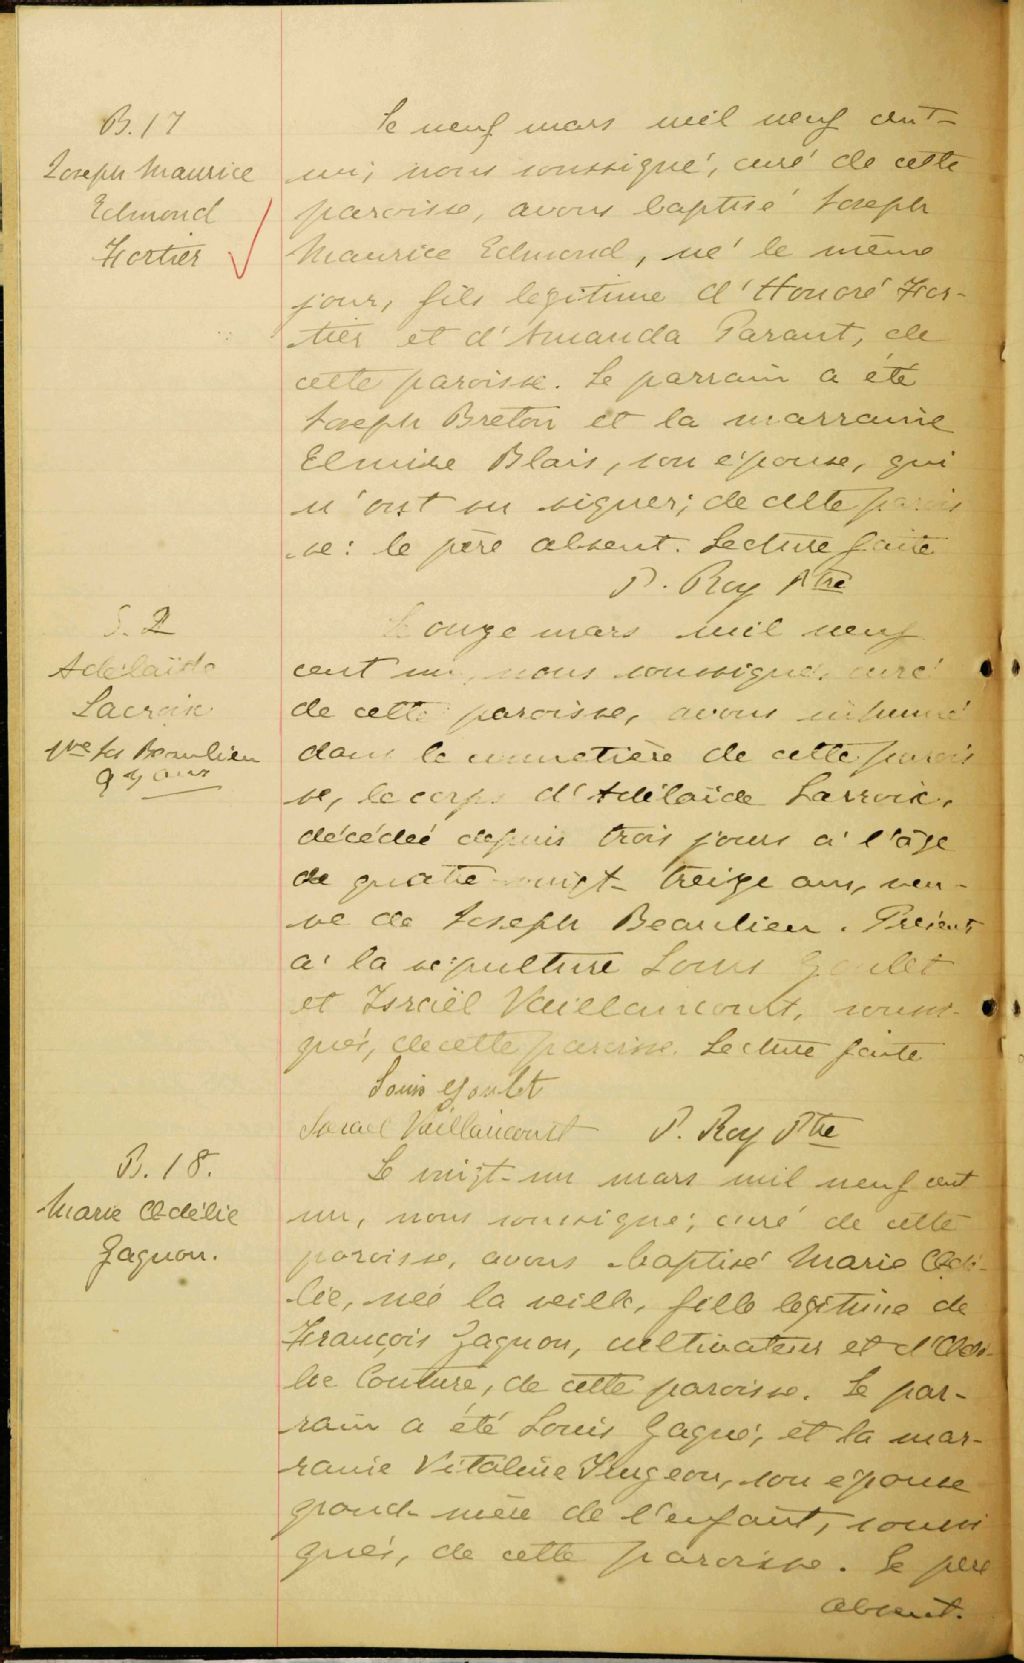 B. 17
Joseph Maurice
Edmond
Fortier
Le neuf mars mil neuf cent-
un, nous soussigné, curé de cette
paroisse, avons baptisé Joseph
Maurice Edmond, né le même
jour, fils legitime d'Honoré For-
tier et d'Amanda Parant, de
cette paroisse. Le parrain a été
Joseph Breton et la marraine
Elmire Blais, son épouse, qui
n'ont su signer; de cette parois
se: le père absent. Lecture faite
P. Roy Ptre
S. 2
Adélaïde
Lacroix
vve Jos Beaulieu
93 ans
Le onze mars mil neuf
cent un, nous soussigné, curé
de cette paroisse, avons inhumé
dans le cimetière de cette parois
se, le corps d'Adélaïde Lacroix,
décédée depuis trois jours à l'âge
de quatre-vingt-treize ans, veu-
ve de Joseph Beaulieu. Présents
à la sépulture Louis Goulet
et Israël Vaillancourt, soussi-
gnés, de cette paroisse. Lecture faite
Louis Goulet
Israel Vaillancourt P. Roy Ptre
B. 18.
Marie Odélie
Gagnon.
Le vingt-un mars mil neuf cent
un, nous soussigné; curé de cette
paroisse, avons baptisé Marie Odé-
lie, née la veille, fille legitime de
François Gagnon, cultivateur et d'Odé-
lie Couture, de cette paroisse. Le par-
rain a été Louis Gagné, et la mar-
raine Vitaline Turgeon, son épouse
grand-mère de l'enfant, soussi
gnés, de cette paroisse. Le père
absent.